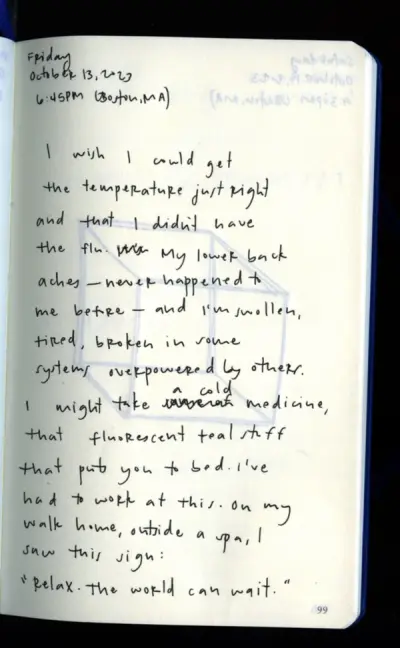 Friday
October 13, 2023
6:45PM (Boston, MA)
I wish I could get
the temperature just right
and that I didn't have
the flu. My lower back
aches — never happened to
me before — and I'm swollen,
tired, broken in some
systems overpowered by others.
a cold
I might take medicine,
that fluorescent teal stuff
that puts you to bed. I've
had to work at this. On my
walk home, outside a spa, I
saw this sign:
"Relax. The world can wait."
99